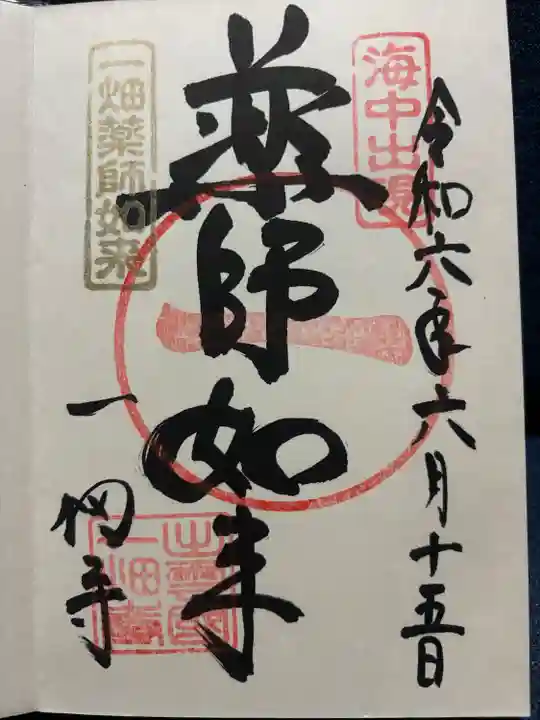 海中出現
令和六年六月十五日
薬師如来
一畑薬師如来
一
一畑寺
出雲國
一畑寺